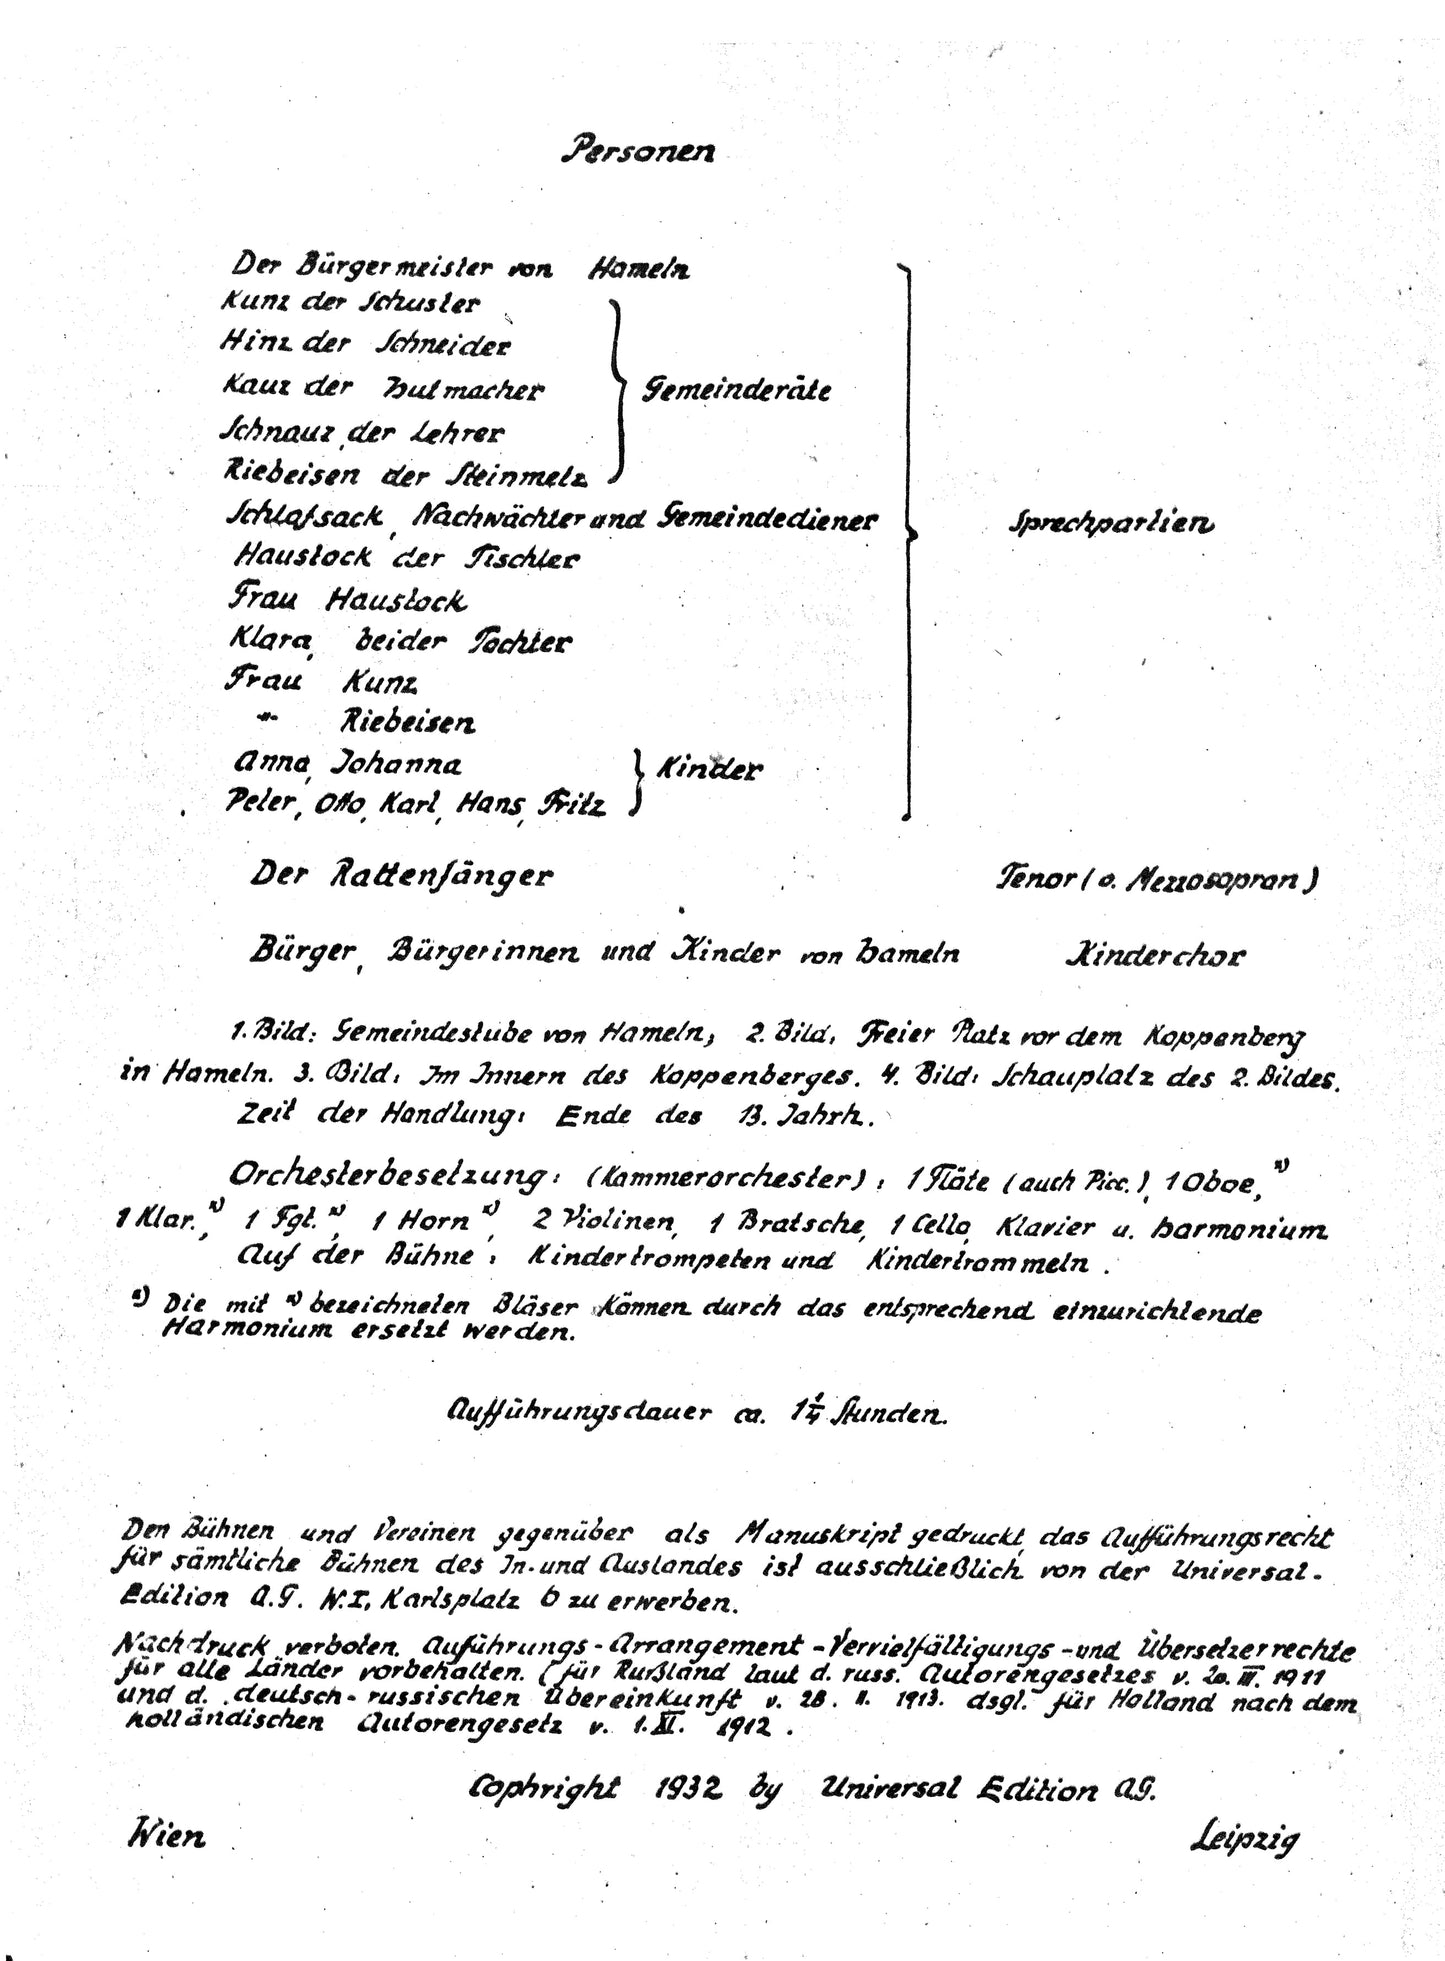 Personen
Der Bürgermeister von Hameln
Kunz der Schuster
Hinz der Schneider
Kauz der Hutmacher
Gemeinderäte
Schnauz, der Lehrer
Riebeisen der Steinmetz
Schlafsack, Nachwächter und Gemeindediener
Sprechpartien
Haustock der Tischler
Frau Haustock
Klara, beider Tochter
Frau Kunz
-"- Riebeisen
Anna, Johanna
Kinder
Peter, Otto, Karl, Hans, Fritz
Der Rattenfänger Tenor (o. Mezzosopran)
Bürger, Bürgerinnen und Kinder von Hameln Kinderchor
1. Bild: Gemeindestube von Hameln; 2. Bild: Freier Platz vor dem Koppenberg
in Hameln. 3. Bild: Im Innern des Koppenberges. 4. Bild: Schauplatz des 2. Bildes.
Zeit der Handlung: Ende des 13. Jahrh.
Orchesterbesetzung: (Kammerorchester): 1 Flöte (auch Picc.), 1 Oboe, x)
1 Klar., x) 1 Fgt. x), 1 Horn x), 2 Violinen, 1 Bratsche, 1 Cello, Klavier u. Harmonium
Auf der Bühne: Kindertrompeten und Kindertrommeln.
x) Die mit x) bezeichneten Bläser können durch das entsprechend einzurichtende
Harmonium ersetzt werden.
Aufführungsdauer ca. 1 1/4 Stunden.
Den Bühnen und Vereinen gegenüber als Manuskript gedruckt, das Aufführungsrecht
für sämtliche Bühnen des In- und Auslandes ist ausschließlich von der Universal-
Edition A.G. W.I, Karlsplatz 6 zu erwerben.
Nachdruck verboten. Auführungs-Arrangement-Vervielfältigungs-und Übersetzerrechte
für alle Länder vorbehalten. (für Rußland laut d. russ. Autorengesetzes v. 20. III. 1911
und d. deutsch-russischen Übereinkunft v. 28. II. 1913. dsgl. für Holland nach dem
holländischen Autorengesetz v. 1. XI. 1912.
Cophright 1932 by Universal Edition A.G.
Wien Leipzig